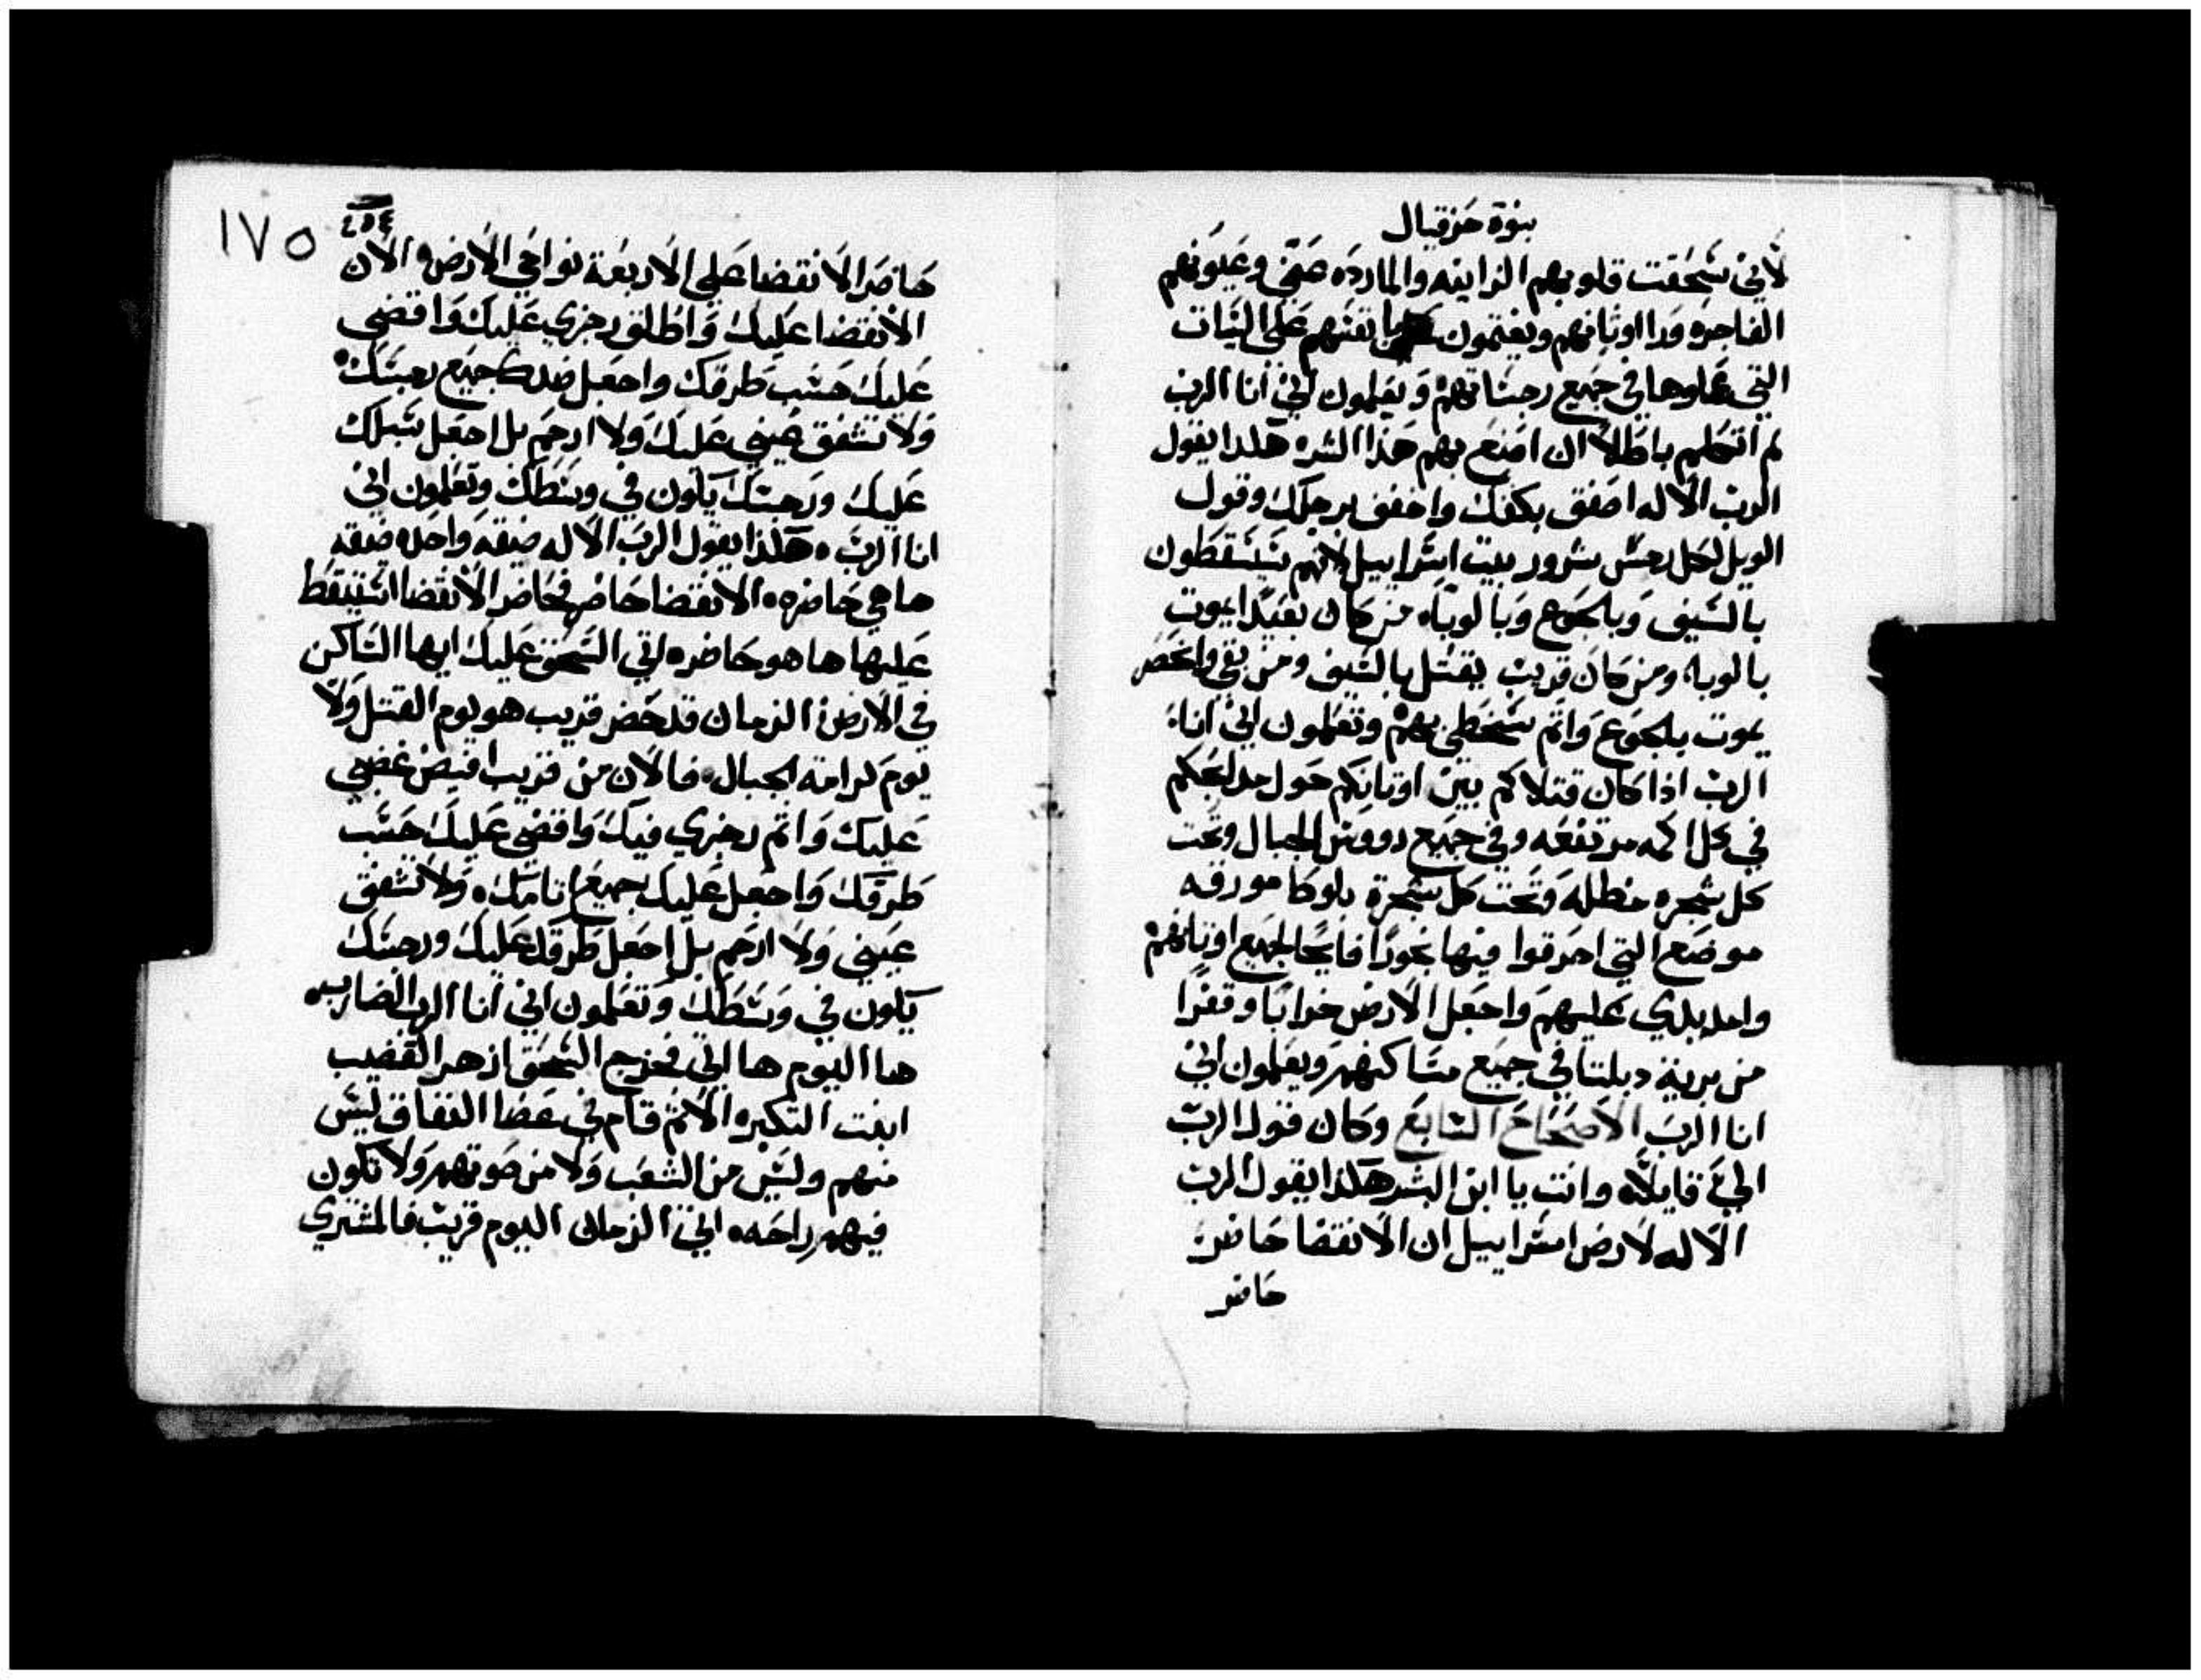 بنوة حزقيال
لاني سحقت قلوبهم الزاينه والمارده عني وعيونهم
الفاجره ورا اوثانهم ويغتمون بانفسهم على السيات
التي عملوها في جميع رجساتهم ويعلمون اني انا الرب
لم اتكلم باطلاً ان اصنع بهم هذا الشر هكذا يقول
الرب الاله اصفق بكفك واخفق برجلك وقول
الويل لكل رجس شرور بيت اسراييل لانهم سيسقطون
بالسيف وبالجوع وبالوباء من كان بعيداً يموت
بالوبا ومن كان قريب يقتل بالسيف ومن بقي وانحصر
يموت بالجوع واتم سخطي بهم وتعلمون اني انا
الرب اذا كان قتلاكم بين اوثانكم حول مدابحكم
في كل اكمه مرتفعه وفي جميع رووس الجبال وتحت
كل شجره مظلله وتحت كل شجرة بلوط مورقه
موضع التي احرقوا فيها بخوراً فايحاً لجميع اوثانهم
وامد يدي عليهم واجعل الارض خراباً وقفراً
من برية دبلتا في جميع مساكنهم ويعلمون اني
انا الرب الاصحاح السابع وكان قول الرب
الي قايلاً وانت يا ابن البشر هكذا يقول الرب
الاله لارض اسراييل ان الانقضا حاضر
حاضر
١٧٥
٤٥٤
حاضر الانقضا على الاربعة نواحي الارض الان
الانقضا عليك واطلق رجزي عليك واقضي
عليك حسب طرقك واجعل ضدك جميع رجستك
ولا تشفق عيني عليك ولا ارحم بل اجعل سبلك
عليك ورجستك يكون في وسطك وتعلمون اني
انا الرب هكذا يقول الرب الاله ضيقه واحده ضيقه
ها هي حاضره الانقضا حاضر فحاضر الانقضا استيقظ
عليها ها هو حاضره اتي السحق عليك ايها الساكن
في الارض الزمان قد حضر قريب هو يوم القتل ولا
يوم كرامة الجبال فالان من قريب افيض غضبي
عليك واتم رجزي فيك واقضي عليك حسب
طرقك واجعل عليك جميع اثامك ولا تشفق
عيني ولا ارحم بل اجعل طرقك عليك ورجستك
يكون في وسطك وتعلمون اني انا الرب الضارب
هدا اليوم ها اتي فخرج السحق ازهر القضيب
ابنت التكبر الاثم قام في عصا النفاق ليس
منهم وليس من الشعب ولا من صوتهم ولا تكون
فيهم راحه اتي الزمان اليوم قريب فالمشتري